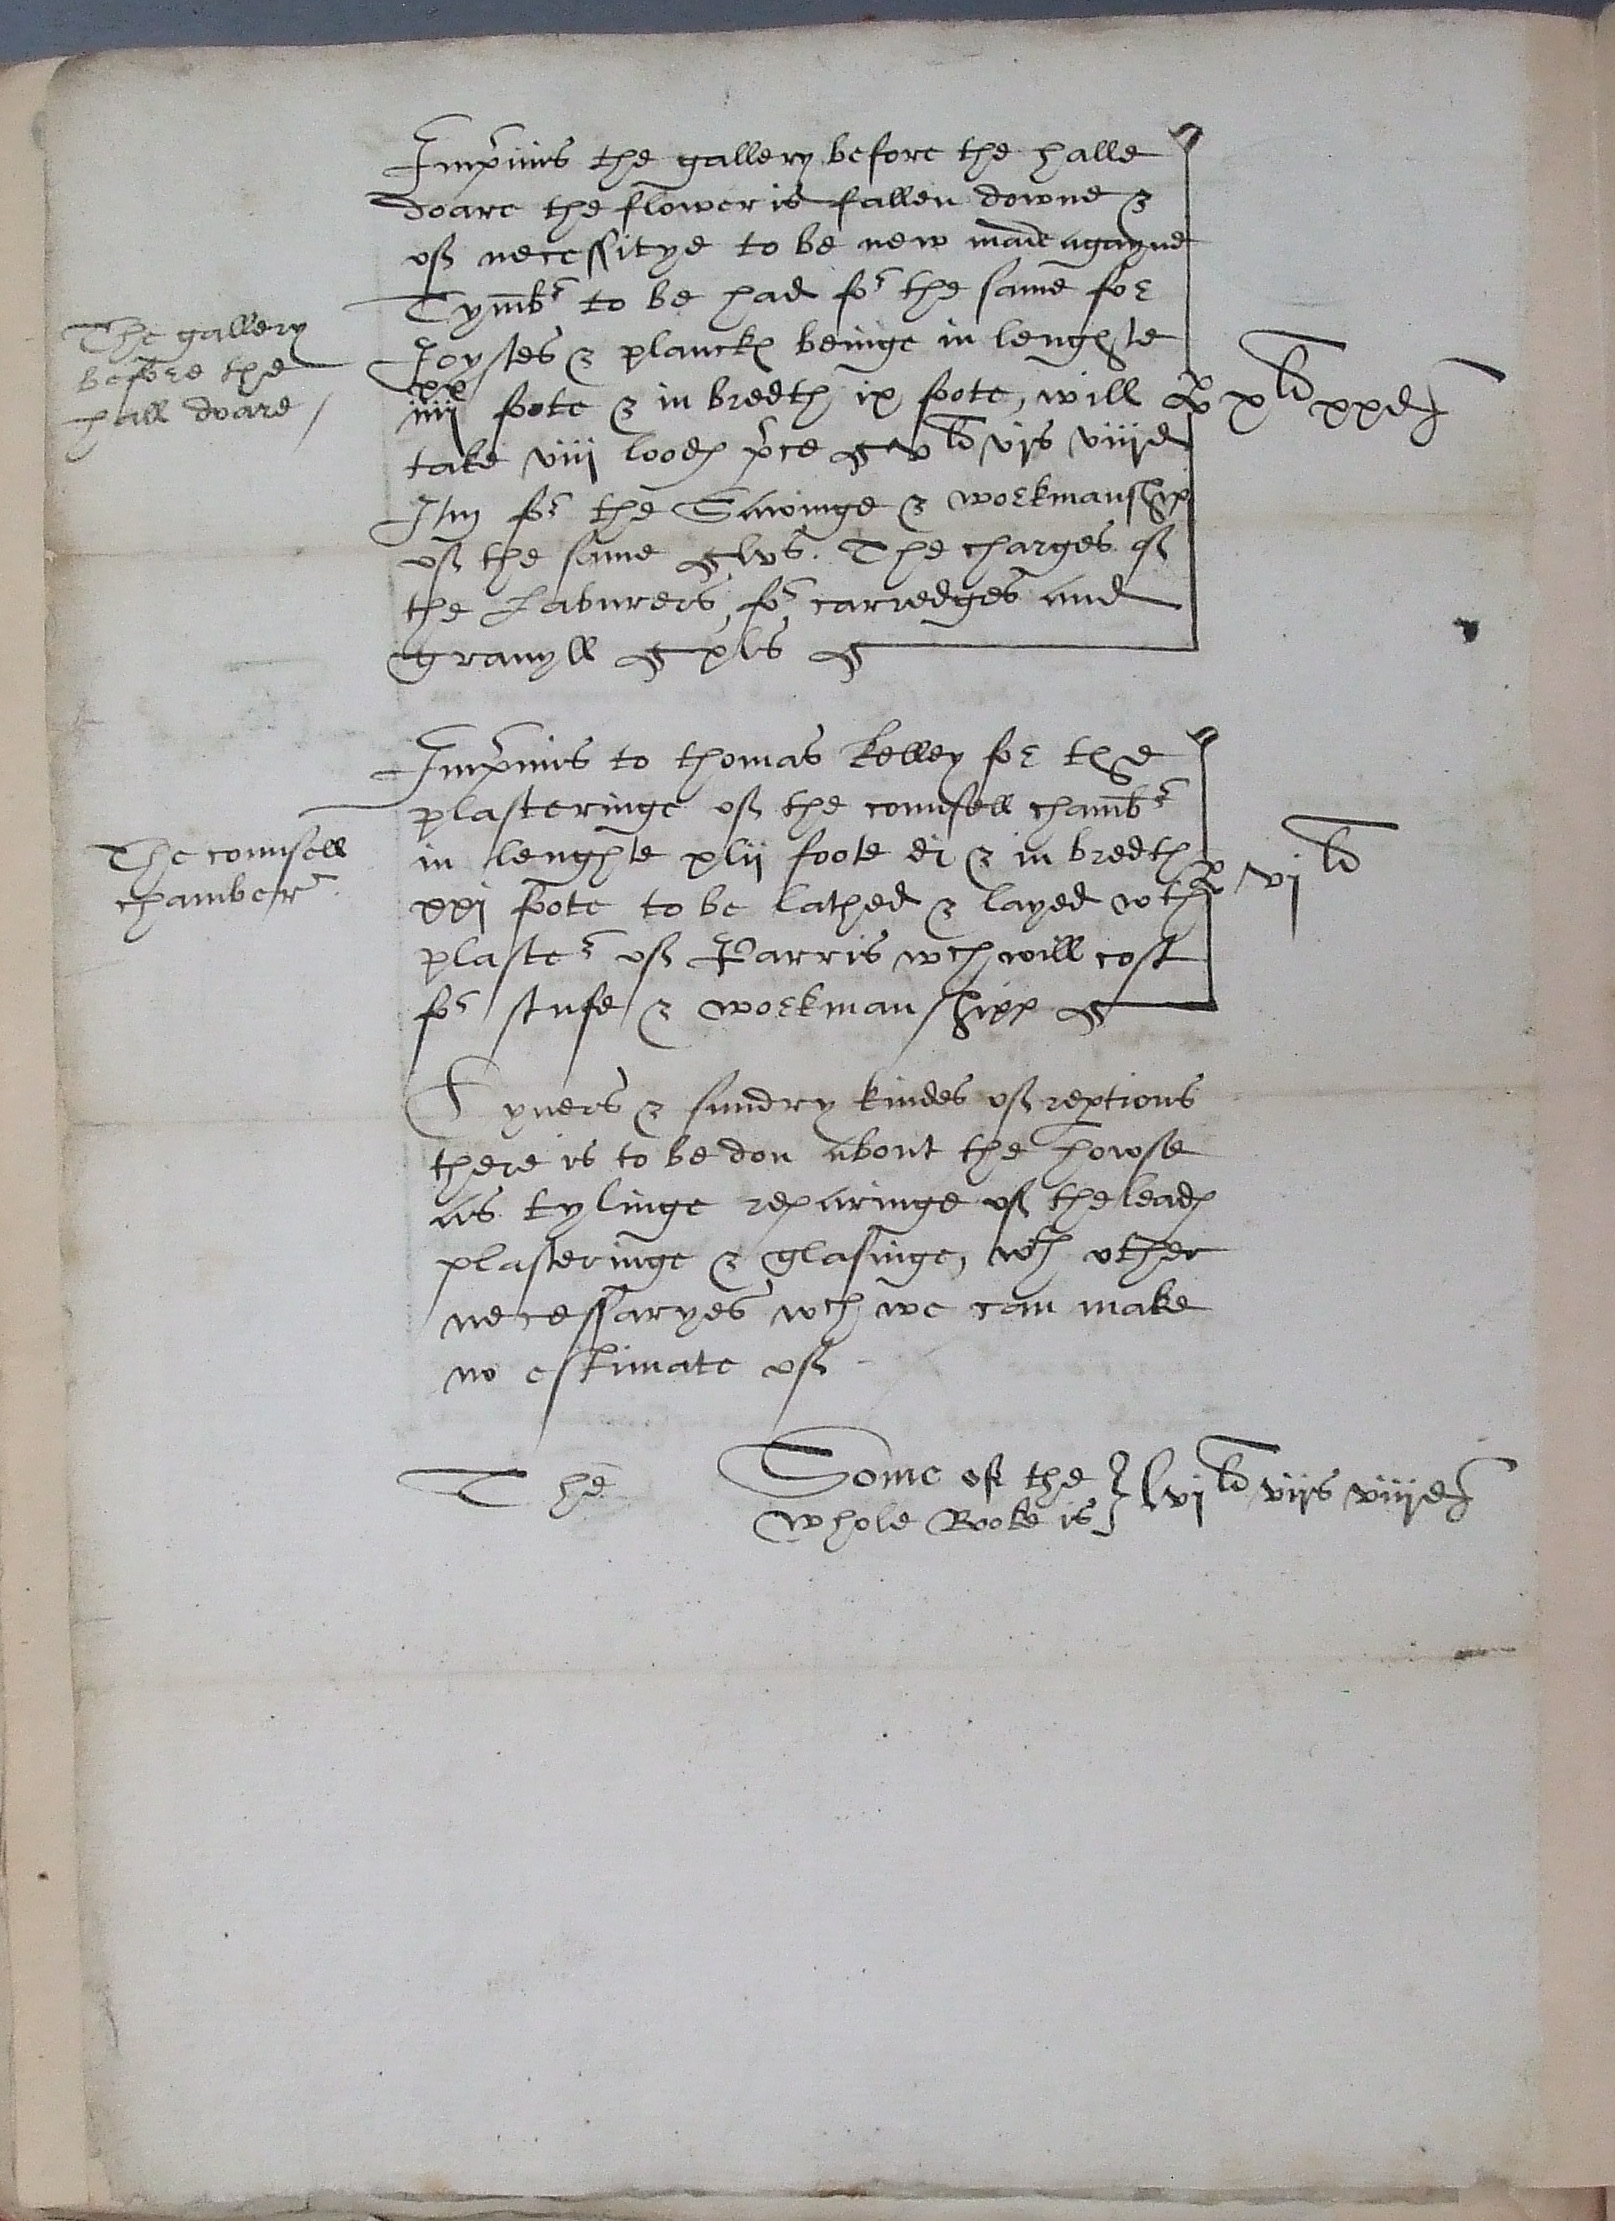 The gallery
before the
hall doare /
Imprimis the gallery before the halle
doare the flower is fallen downe &
off necessitye to be new made agayne
Tymbr to be had for the same for
Joystes & planckes beinge in lenghte
iiii xx foote & in bredth ix foote, will
take viii loodes price v li vis viiid
Itm for the Sawinge & workmanship
off the same lvs. The charges off
the Laburers, for carredges and
gravyll xls
x li xxd
The counsell
chamber
Imprimis to thomas kelley for the
plasteringe off the counsell chambr
in lenghte xlii foote di & in bredth
xxi foote to be lathed & layed wth
plaster off Parris wch will cost
for stufe & workmanshipp
vi li
Dyvers & sundry kindes off reptions
there is to be don about the howse
as tylinge reparinge off the leades
plasteringe & glasinge, wth other
necessaryes wch we can make
no estimate off
The
Some off the
whole Booke is
lvi li viis viiid